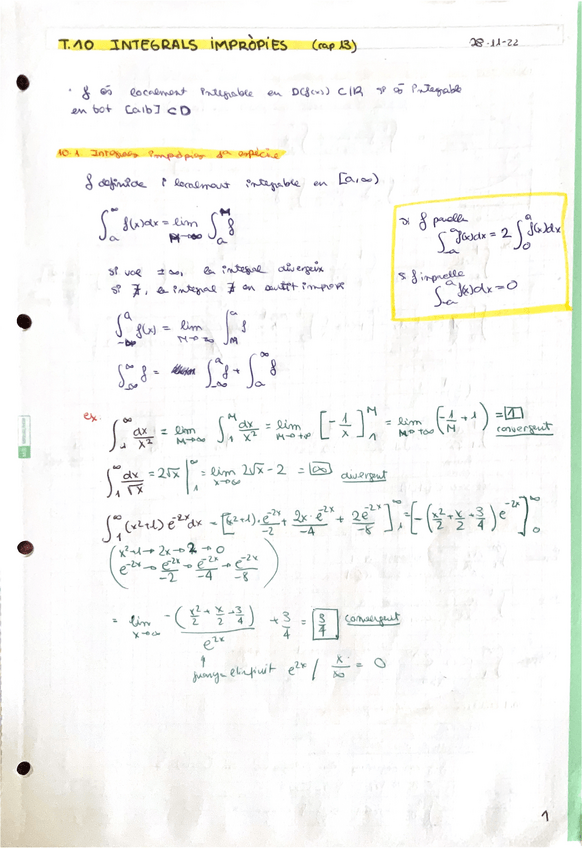 T.10 INTEGRALS IMPRÒPIES (cap 13)
28-11-22
· f és localment integrable en D(f(x)) ⊂ ℝ si és integrable
en tot [a,b] ⊂ D
10.1 Integrals impròpies 1ª espècie
f definida i localment integrable en [a,∞)
∫_a^∞ f(x)dx = lim_{M→∞} ∫_a^M f
si val ±∞, la integral divergeix
si ∄, la integral ∄ en sentit impropi
∫_{-∞}^a f(x) = lim_{M→-∞} ∫_M^a f
∫_{-∞}^∞ f = ∫_{-∞}^a f + ∫_a^∞ f
si f parella
∫_{-a}^a f(x)dx = 2 ∫_0^a f(x)dx
si f imparella
∫_{-a}^a f(x)dx = 0
ex:
∫_1^∞ dx/x² = lim_{M→∞} ∫_1^M dx/x² = lim_{M→+∞} [-1/x]_1^M = lim_{M→+∞} (-1/M + 1) = 1 convergent
∫_1^∞ dx/√x = 2√x |_1^∞ = lim_{x→∞} 2√x - 2 = ∞ divergent
∫_1^∞ (x²+1) e^{-2x} dx = [(x²+1)·e^{-2x}/-2 + 2x·e^{-2x}/-4 + 2e^{-2x}/-8]_1^∞ = [-(x²/2 + x/2 + 3/4) e^{-2x}]_0^∞
(x²+1 → 2x → 2 → 0
e^{-2x} → e^{-2x}/-2 → e^{-2x}/-4 → e^{-2x}/-8)
= lim_{x→∞} -(x²/2 + x/2 + 3/4)/e^{2x} + 3/4 = 3/4 convergent
↑
e^{2x} / x/∞ = 0
1